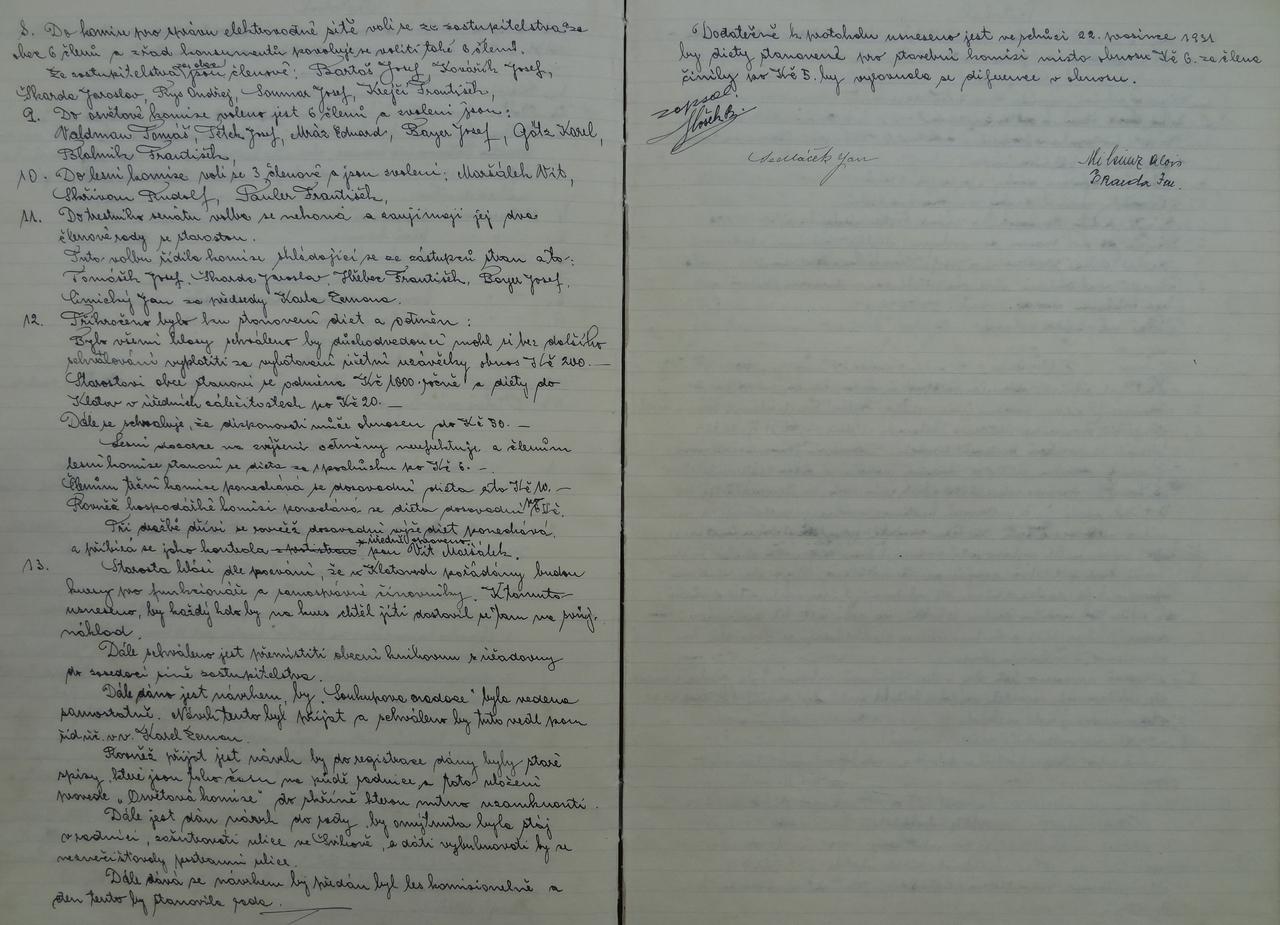 8. Do komise pro správu elektrovodné sítě volí se ze zastupitelstva za
obec 6 členů a z řad konsumentů povoluje se voliti také 6 členů.
Ze zastupitelstva za obec jsou členové: Bartoš Josef, Kovářík Josef,
Škarda Jaroslav, Rys Ondřej, Sommar Josef, Krejčí František,
9. Do osvětové komise voleno jest 6 členů a zvoleni jsou:
Valdman Tomáš, Tetek Josef, Mráz Eduard, Bayer Josef, Götz Karel,
Blahník František,
10. Do lesní komise volí se 3 členové a jsou zvoleni: Maršálek Vít,
Skřivan Rudolf, Pauler František,
11. Do trestního senátu volba se nekoná a zaujímají jej dva
členové rady se starostou.
Tuto volbu řídila komise skládající se ze zástupců stran a to:
Tomášek Josef, Škarda Jaroslav, Hřebec František, Bayer Josef,
Cimický Jan za předsedy Karla Zemana.
12. Přikročeno bylo ku stanovení diet a odměn:
Bylo všemi hlasy schváleno by důchodvedoucí mohl si bez dalšího
schvalování vyplatiti za vyhotovení účetní uzávěrky obnos Kč 200.—
Starostovi obce stanoví se odměna Kč 1800 ročně a diety do
Klatov v úředních záležitostech po Kč 20.—
Dále se schvaluje, že disponovati může obnosem do Kč 50.—
Lesní dozorce na zvýšení odměny nereflektuje a členům
lesní komise stanoví se dieta za spochůzku po Kč 6.—
Členům tržní komise ponechává se dosavadní dieta a to Kč 10.—
Rovněž hospodářské komisi ponechává se dieta dosavadní
Při dražbě dříví se rovněž dosavadní výše diet ponechává
a přibírá se jeho kontrola pan Vít Maršálek.
13. Starosta hlásí dle pozvání, že v Klatovech pořádány budou
kursy pro funkcionáře a samosprávné činovníky. K tomuto
usneseno, by každý kdo by na kurs chtěl jíti dostavil se tam na svůj
náklad.
Dále schváleno jest přemístiti obecní knihovnu z úřadovny
do zasedací síně zastupitelstva.
Dále dáno jest návrhem, by „Soukupova nadace" byla vedena
samostatně. Návrh tento byl přijat a schváleno by tuto vedl pan
říd. uč. v. v. Karel Zeman.
Rovněž přijat jest návrh by do registrace dány byly staré
spisy, které jsou toho času na půdě radnice, a toto uložení
provede „Osvětová komise" do skříně kterou nutno uzamknouti.
Dále jest dán návrh do rady, by omýtnuta byla stáj
v radnici, zaštětovati ulice ve Švihově, a dáti vybubnovati by se
neznečišťovaly postranní ulice.
Dále dává se návrhem by předán byl les komisionelně a
den tento by stanovila rada.
Dodatečně k protokolu usneseno jest ve schůzi 22. prosince 1931
by diety stanovené pro stavební komisi místo obnosu Kč 6. za člena
činily po Kč 5. by vyrovnala se diference v obnosu.
zapsal:
Sedláček Jan
Alois
Branda Jan.